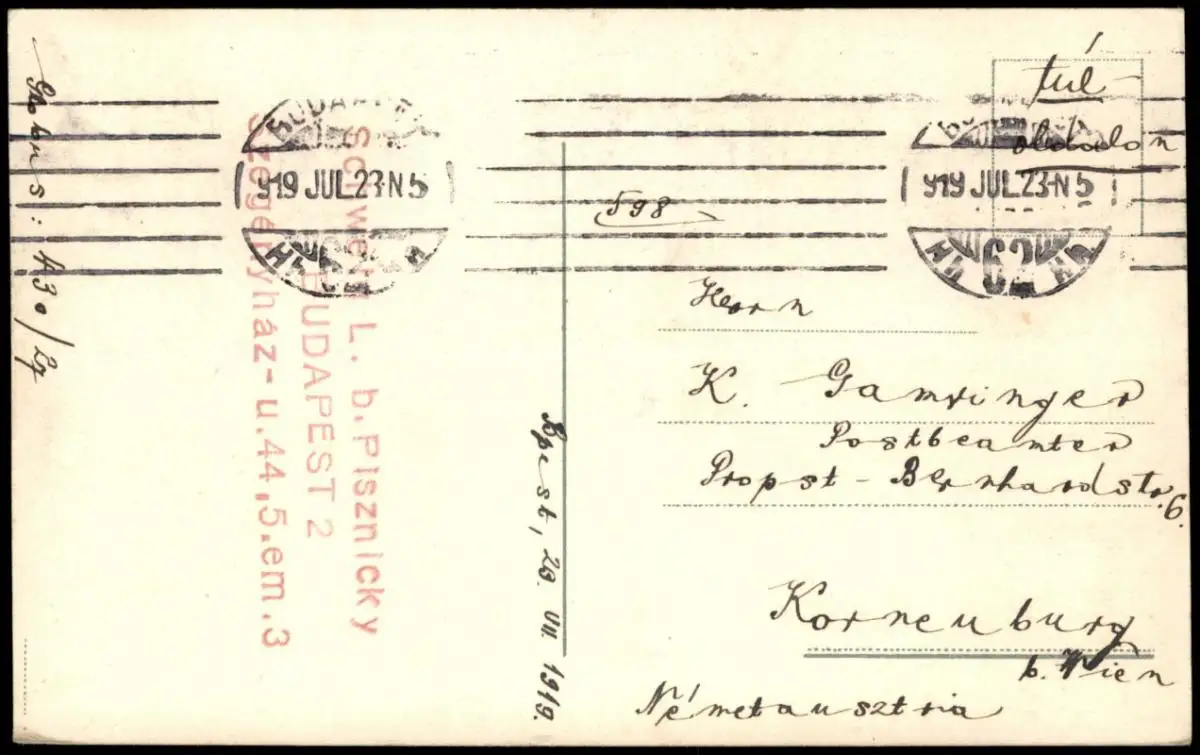 túl-
oldalon
BUDAPEST
919 JUL 23-N 5
919 JUL 23-N 5
62
598
Herrn
K.
Postbeamter
Propst-Bernhardstr. 6.
Korneuburg
b. Wien
Németausztria
Bpest, 23. VII. 1919.
L. b. Pisznicky
BUDAPEST 2
Szegényház-u. 44, 5. em. 3